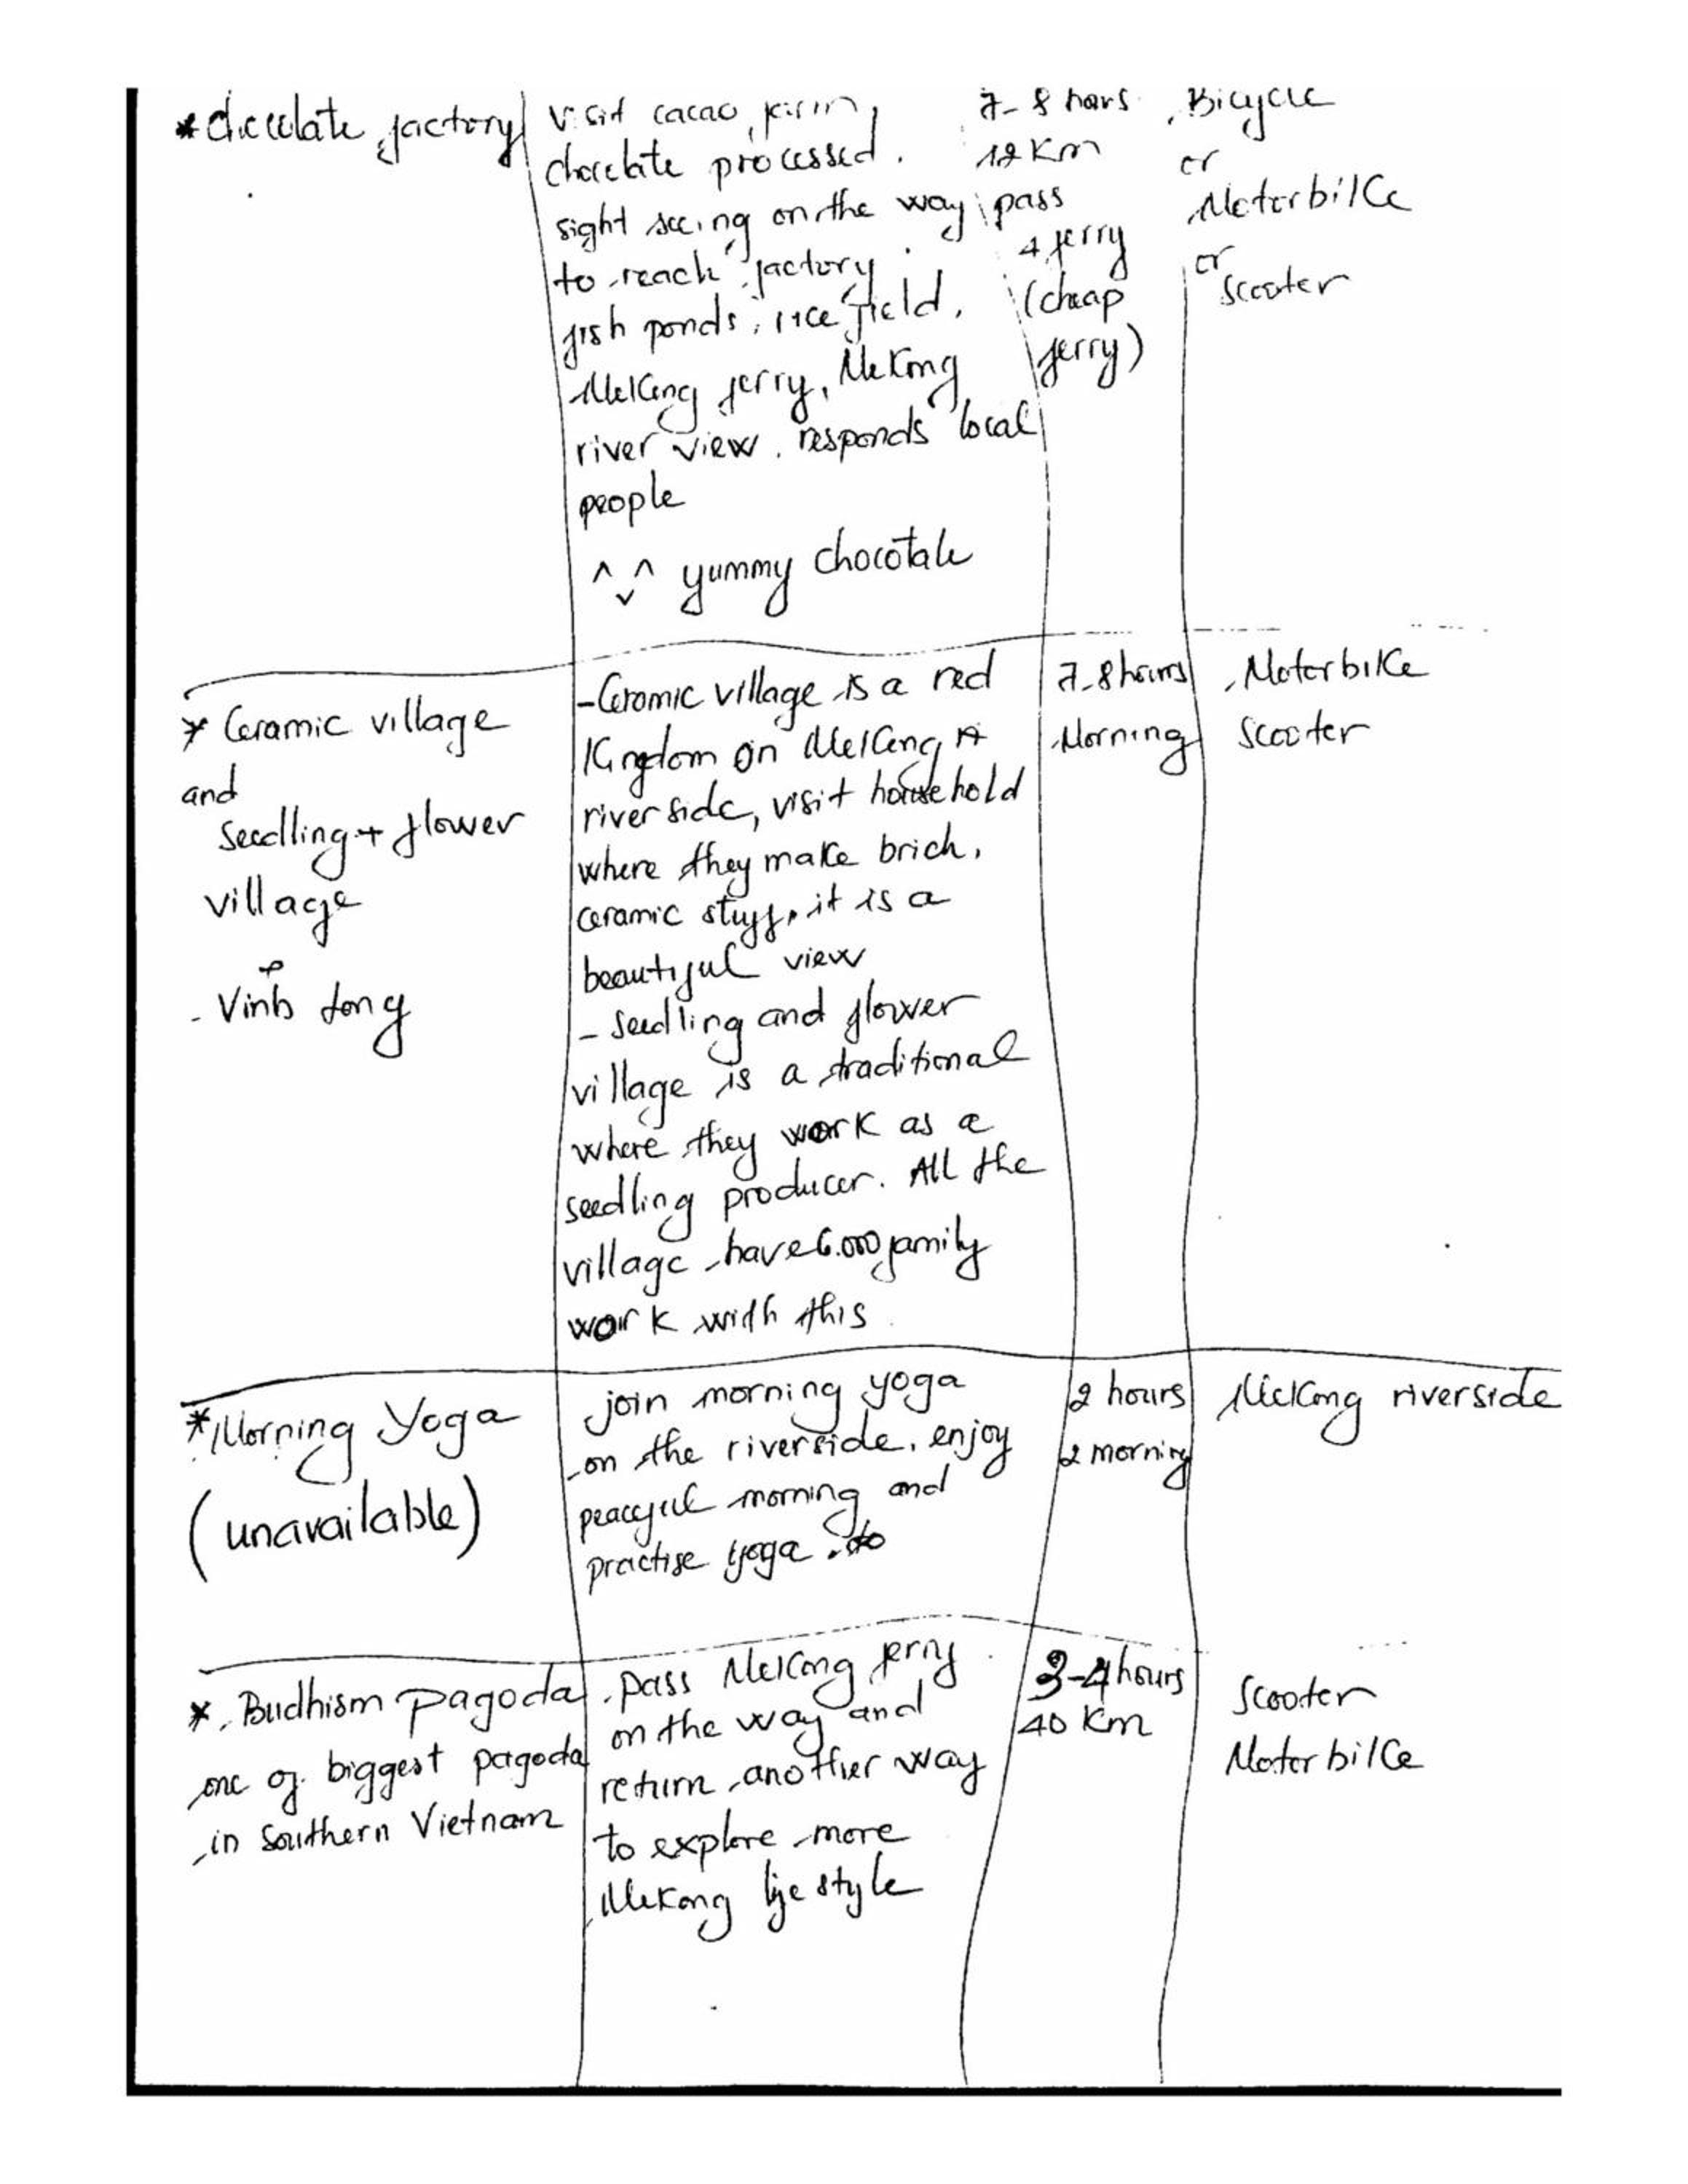 * Chocolate factory
visit cacao farm,
chocolate processed.
sight seeing on the way
to reach factory
fish ponds, rice field,
Mekong ferry, Mekong
river view. responds local
people
^v^ yummy chocotale
7-8 hours
12 Km
pass
4 ferry
(cheap
ferry)
Bicycle
or
Motorbike
or
Scooter
* Ceramic village
and
Seedling + flower
village
- Vinh Long
- Ceramic village is a red
Kingdom on Mekong
river side, visit household
where they make brich,
ceramic stuff, it is a
beautiful view
- Seedling and flower
village is a traditional
where they work as a
seedling producer. All the
village have 6.000 family
work with this
7-8 hours
Morning
Motorbike
Scooter
* Morning Yoga
(unavailable)
join morning yoga
on the riverside, enjoy
peaceful morning and
practise yoga.
2 hours
2 morning
Mekong riverside
* Budhism pagoda
one of biggest pagoda
in Southern Vietnam
pass Mekong ferry
on the way and
return another way
to explore more
Mekong life style
3-4 hours
40 Km
Scooter
Motorbike